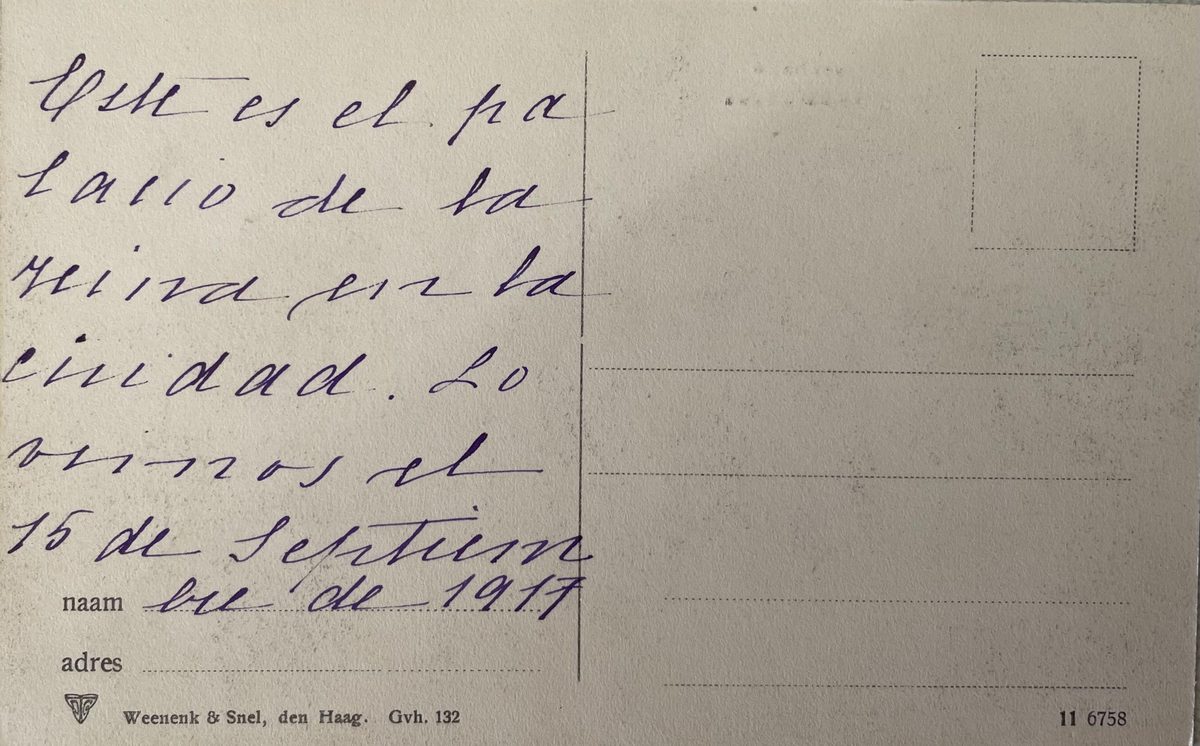 Este es el pa
lacio de la
reina en la
ciudad. Lo
vimos el
15 de Septiem
bre de 1917
naam
adres
Weenenk & Snel, den Haag. Gvh. 132
11 6758